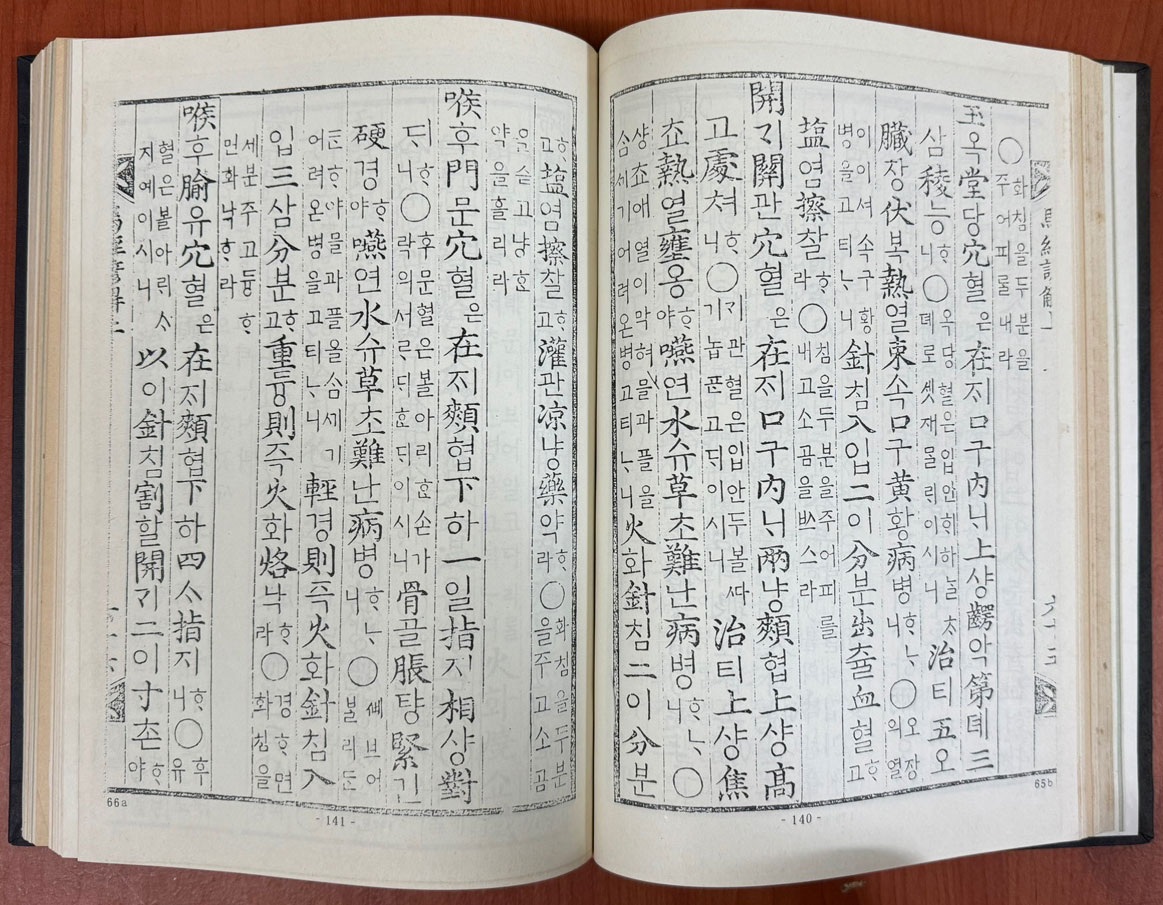 馬經諺解上
六十五
○화침을두분을
주어피롤내라
玉옥堂당穴혈은在ᄌᆡ口구內ᄂᆡ上샹齶악第뎨三
삼稜능ᄒᆞ니○옥당혈은입안하ᄂᆞᆯ
뎨로셋재ᄆᆞᆯᄅᆡ이시니
治티五오
臟장伏복熱열束속口구黃황病병ᄒᆞᄂᆞ니○오장
의열
이이셔속구황
병을고티ᄂᆞ니
針침入입二이分분出츌血혈ᄒᆞ고
塩염擦찰ᄒᆞ라○침을두분을주어피를
내고소곰을ᄡᅳ스라
開ᄀᆡ關관穴혈은在ᄌᆡ口구內ᄂᆡ兩냥頰협上샹高
고處쳐ᄒᆞ니○ᄀᆡ관혈은입안두볼ᄯᅡ
기놉픈고ᄃᆡ이시니
治티上샹焦
쵸熱열壅옹ᄒᆞ야嚥연水슈草초難난病병ᄒᆞᄂᆞ니○
샹쵸애열이막혀믈과플을
삼세기어려온병고티ᄂᆞ니
火화針침二이分분
65b
- 140 -
ᄒᆞ고塩염擦찰ᄒᆞ고灌관凉냥藥약ᄒᆞ라○화침을두분
을주고소곰
을슫고냥ᄒᆞᆫ
약을흘리라
喉후門문穴혈은在ᄌᆡ頰협下하一일指지相샹對
ᄃᆡᄒᆞ니○후문혈은볼아ᄅᆡᄒᆞᆫ손가
락의서ᄅᆞᄃᆡᄒᆞᆫᄃᆡ이시니
骨골脹턍緊긴
硬경ᄒᆞ야嚥연水슈草초難난病병ᄒᆞᄂᆞ니○ᄲᅧ브어
ᄇᆞᆯ리ᄃᆞᆫ
ᄃᆞᆫᄒᆞ야믈과플을ᄉᆞᆷ세기
어려온병을고티ᄂᆞ니
輕경則즉火화針침入
입三삼分분ᄒᆞ고重듕則즉火화烙낙ᄒᆞ라○경ᄒᆞ면
화침을
세분주고듕ᄒᆞ
면화낙ᄒᆞ라
喉후腧유穴혈은在ᄌᆡ頰협下하四ᄉᆞ指지ᄒᆞ니○후
유
혈은볼아ᄅᆡᄉᆞ
지예이시니
以이針침割할開ᄀᆡ二이寸촌ᄒᆞ야
馬經諺解上
66a
- 141 -